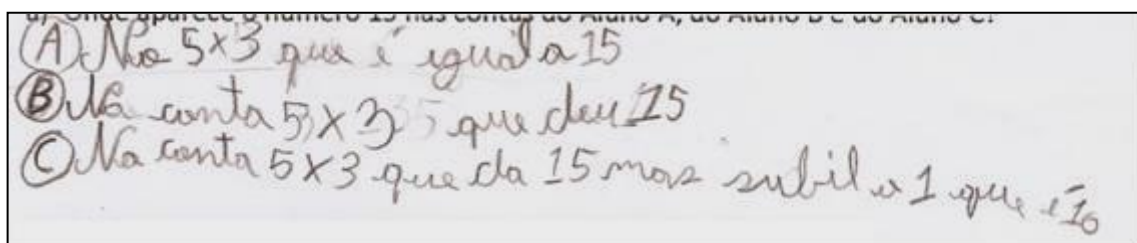 a) Onde aparece o número 15 nas contas do Aluno A, do Aluno B e do Aluno C?
(A) No 5x3 que é igual a 15
(B) Na conta 5x3 que deu 15
(C) Na conta 5x3 que da 15 mas subil o 1 que é 10